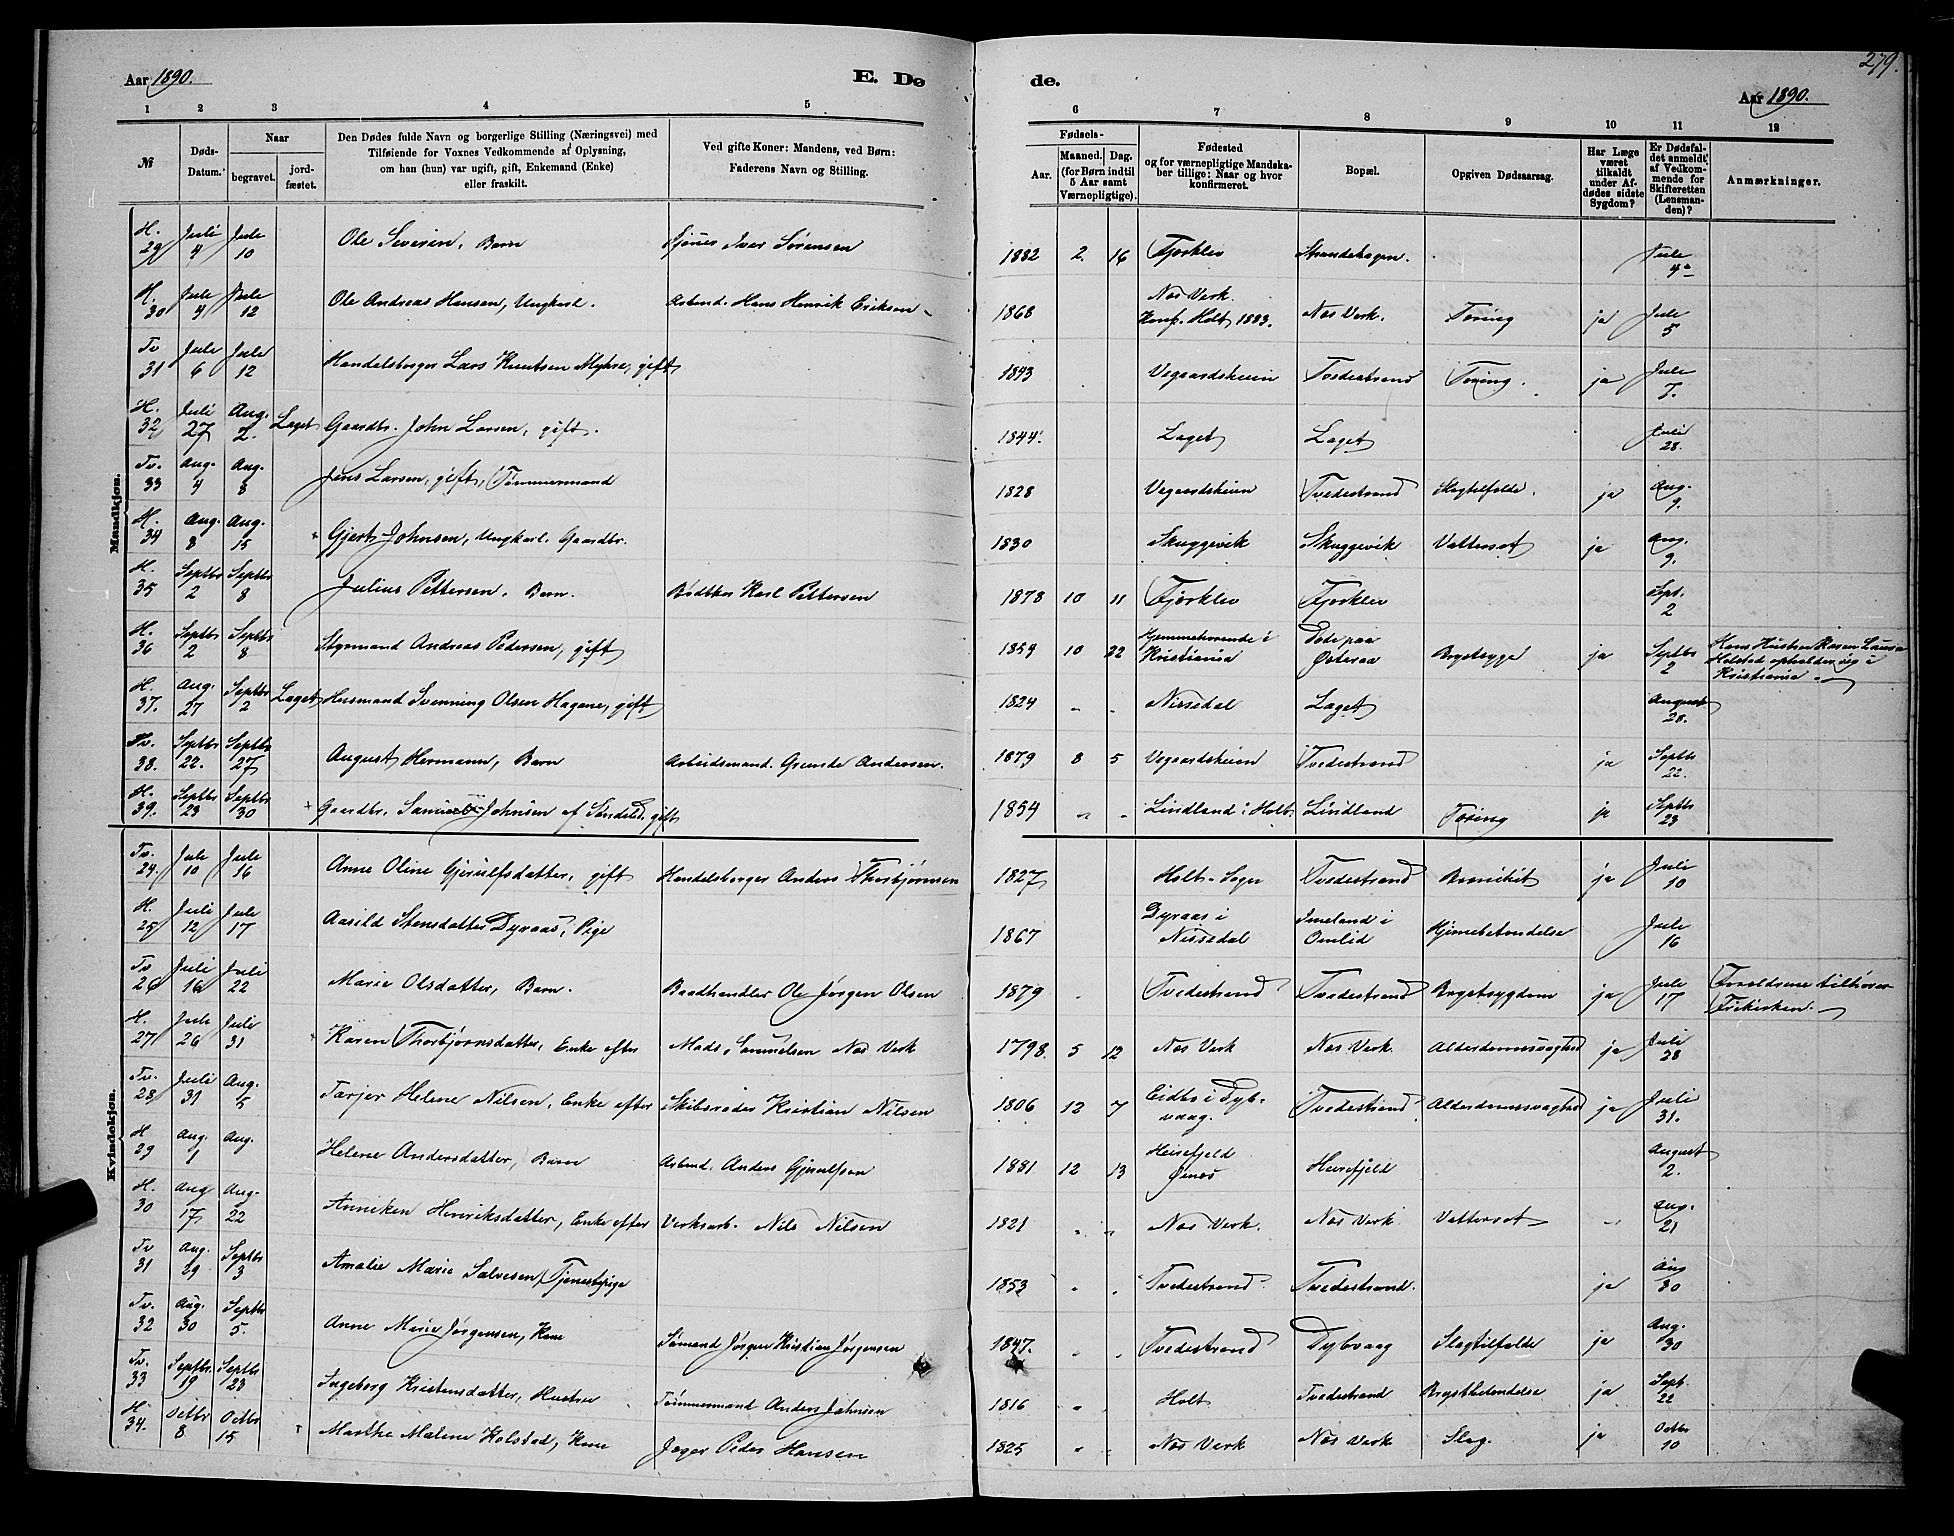 279.
Aar 1890.
E. Dø
de.
Aar 1890.
1 2 3 4 5 6 7 8 9 10 11 12
№
Døds-Datum.
Naar
begravet.
jord-fæstet.
Den Dødes fulde Navn og borgerlige Stilling (Næringsvei) med
Tilføiende for Voxnes Vedkommende af Oplysning,
om han (hun) var ugift, gift, Enkemand (Enke)
eller fraskilt.
Ved gifte Koner: Mandens, ved Børn:
Faderens Navn og Stilling.
Fødsels-
Aar.
Maaned. Dag.
(for Børn indtil
5 Aar samt
Værnepligtige).
Fødested
og for værnepligtige Mandska-
ber tillige: Naar og hvor
konfirmeret.
Bopæl.
Opgiven Dødsaarsag.
Har Læge
været
tilkaldt
under Af-
dødes sidste
Sygdom?
Er Dødsfal-
det anmeldt
af Vedkom-
mende for
Skifteretten
(Lensman-
den)?
Anmærkninger.
Mandkjøn.
H. 29 Juli 4 Juli 10 Ole Severin, Barn Iver Sørensen 1882 2 16 Fjerklev Strandehagen. Juli 4
H. 30 Juli 4 Juli 12 Ole Andreas Hansen, Ungkarl. Arbmd. Hans Henrik Eriksen 1868 Nes Verk. Konf. Holt 1883. Nes Verk. Tæring ja Juli 5
Tv 31 Juli 6 Juli 12 Handelsborger Lars Knutsen Myhre, gift 1843 Vegaardsheien Tvedestrand Tæring. ja Juli 7.
H. 32 Juli 27 Aug. 2. Laget Gaardbr. John Larsen, gift. 1844. Laget Laget Juli 28.
Tv. 33 Aug. 4 Aug. 8 Jens Larsen, gift, Tømmermand 1828 Vegaardsheien Tvedestrand Slagtilfælde. ja Aug. 9.
H. 34 Aug. 8 Aug. 15 Gjert Johnsen, Ungkarl. Gaardbr. 1830 Skuggevik Skuggevik Vattersot ja Aug. 9.
H. 35 Septbr 2 Septbr 8 Julius Pettersen, Barn. Bødtker Karl Pettersen 1878 10 11 Fjerklev Fjerklev Sept. 2
H. 36 Septbr 2 Septbr 8 Styrmand Andreas Pedersen, gift 1859 10 22 Hjemmehørende i Kristiania Døde paa Østeraa Brystsyge ja Septbr 2 Hans Hustru Karen Laura Holstad opholder sig i Kristiania
H. 37. Aug. 27 Septbr 2 Laget Husmand Svenning Olsen Hagane, gift 1824 " " Nissedal Laget August 28.
Tv. 38. Septbr 22. Septbr 27 August Hermann, Barn Arbeidsmand. Gunder Andersen. 1879 8 5 Vegaardsheien Tvedestrand ja Septbr 22.
H. 39. Septbr 23 Septbr 30 Gaardbr. Samuel Johnsen af Søndeled, gift 1854 " " Lindland i Holt Lindland Tæring ja Septbr 23
Kvindekjøn.
Tv. 24. Juli 10 Juli 16 Anne Oline Gjerulfsdatter, gift Handelsborger Anders Thorbjørnsen 1827 Holt Sogn Tvedestrand Bronkit ja Juli 10
H. 25 Juli 12 Juli 17 Aasild Stensdatter Dyraas, Pige 1867 Dyraas i Nissedal Imeland i Omlid Hjernebetændelse Juli 16
Tv 26 Juli 16 Juli 22 Marie Olsdatter, Barn. Baadhandler Ole Jørgen Olsen 1879 " Tvedestrand Tvedestrand Brystsygdom ja Juli 17 Forældrene tilhører Frikirken.
H. 27 Juli 26 Juli 31 Karen Thorbjørnsdatter, Enke efter Mads Samuelsen Nes Verk 1798. 5 12 Nes Verk Nes Verk. Alderdomssvaghed ja Juli 28
Tv. 28 Juli 31 Aug. 5 Tarjer Helene Nilsen, Enke efter Skibsreder Kristian Nilsen 1806 12 7 Eidbo i Dybvaag. Tvedestrand Alderdomssvaghed ja Juli 31.
H 29 Aug. 1 Aug. Helene Andersdatter, Barn Arbmd. Anders Gjerulfsen 1881 12 13 Heirefjeld Heirefjeld August 2.
H. 30 Aug 17 Aug. 22 Anniken Henriksdatter, Enke efter Verksarb. Nils Nilsen 1821 " " Nes Verk. Nes Verk Vattersot " Aug. 21
Tv 31 Aug. 29 Septbr 3 Amalie Marie Salvesen, Tjenestpige 1853 " " Tvedestrand Tvedestrand. ja Aug 30
Tv. 32 Aug. 30 Septbr 5. Anne Marie Jørgensen, Kone Sømand Jørgen Kristian Jørgensen 1847. " " Tvedestrand Dybvaag Slagtilfælde ja Aug. 30
Tv. 33 Septbr. 19 Septbr 23 Ingeborg Kristensdatter, Hustru Tømmermand Anders Johnsen 1816 " Holt Tvedestrand Brystbetændelse ja Sept. 22
H 34. Octbr 8 Octbr 15 Marthe Malene Holstad, Kone Jæger Peder Hansen 1825 " Nes Verk Nes Verk Slag. ja Octbr 10